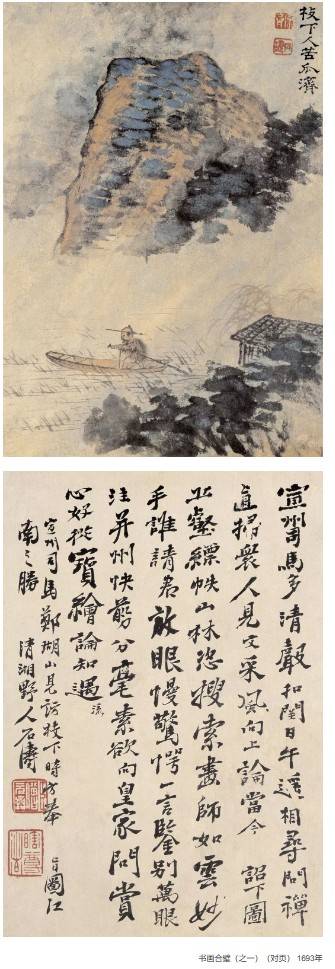 枝下人苦瓜濟
宣州司馬多清 扣閽日午遥相尋問禪
直掃衆人見文采風向上論當今 詔下圖
丘壑縹帙山林恣搜索畫師如雲妙
手誰請君放眼慢驚愕一言鑒別萬眼
注并州快剪分毫素欲向皇家問賞
心好從寶繪論知遇
流
宣州司馬鄭瑚山見訪枝下時方奉
旨圖江
南之勝
清湘野人石濤
书画合壁（之一）（对页） 1693年